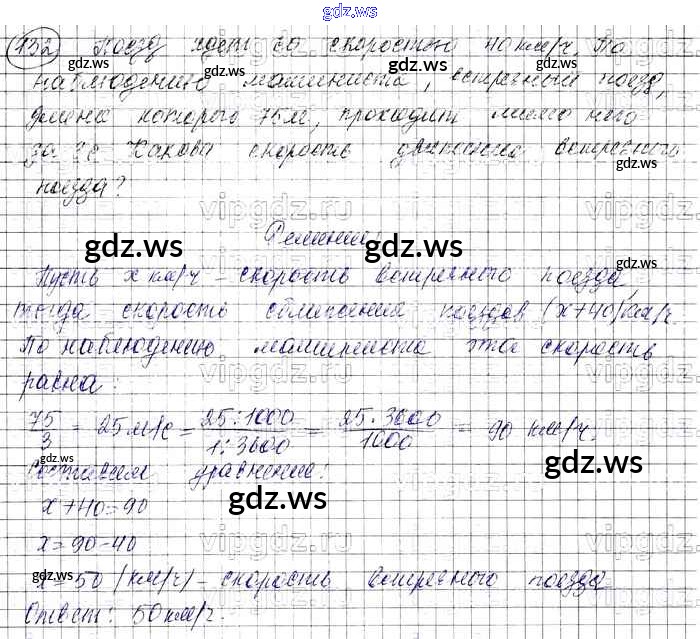 gdz.ws
132 Поезд идет со скоростью 40 км/ч. По
gdz.ws gdz.ws
наблюдению машиниста, встречный поезд,
длина которого 75 м, проходит мимо него
gdz.ws gdz.ws
за 3 с. Какова скорость движения встречного
поезда?
vipgdz.ru vipgdz.ru
Решение:
gdz.ws gdz.ws
Пусть x км/ч - скорость встречного поезда,
тогда скорость сближения поездов (x+40) км/ч.
По наблюдению машиниста эта скорость
равна:
vipgdz.ru vipgdz.ru
75/3 = 25 м/с = 25:1000/1:3600 = 25·3600/1000 = 90 км/ч.
gdz.ws gdz.ws
Составим уравнение:
gdz.ws
x+40=90
x=90-40
vipgdz.ru vipgdz.ru
gdz.ws gdz.ws
x=50 (км/ч) - скорость встречного поезда
Ответ: 50 км/ч.
gdz.ws